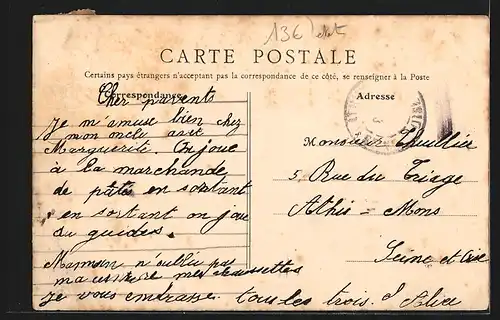 136
CARTE POSTALE
Certains pays étrangers n'acceptant pas la correspondance de ce côté, se renseigner à la Poste
Correspondance
Adresse
Cher parents
Je m'amuse bien chez
mon oncle avec
Marguerite. On joue
à la marchande
de pâtés en sortant
en sortant on joue
au guides.
Maman n'oublie pas
mes chaussettes
je vous embrasse tous les trois. Alice
Monsieur
5, Rue du Triage
Athis = Mons
Seine et Oise